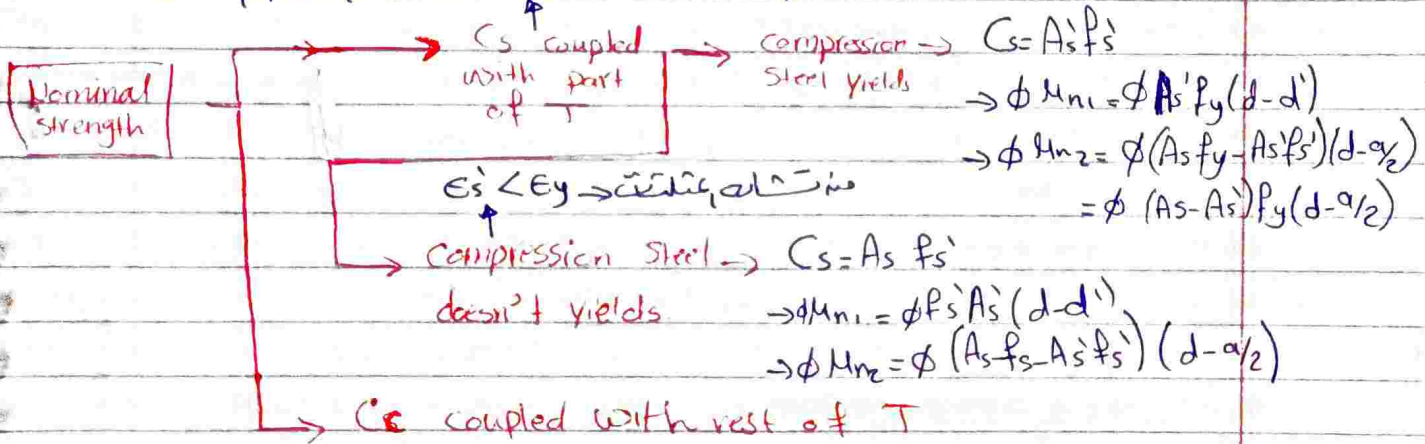 Nominal strength
Cs coupled with part of T
compression steel yields → Cs = As' fs'
→ φ Mn1 = φ As' fy (d-d')
→ φ Mn2 = φ (As fy - As' fs') (d-a/2)
= φ (As - As') fy (d-a/2)
εs' < εy →
Compression Steel doesn't yields → Cs = As fs'
→ φMn1 = φ fs' As' (d-d')
→ φ Mn2 = φ (As fs - As' fs') (d-a/2)
Cc coupled with rest of T